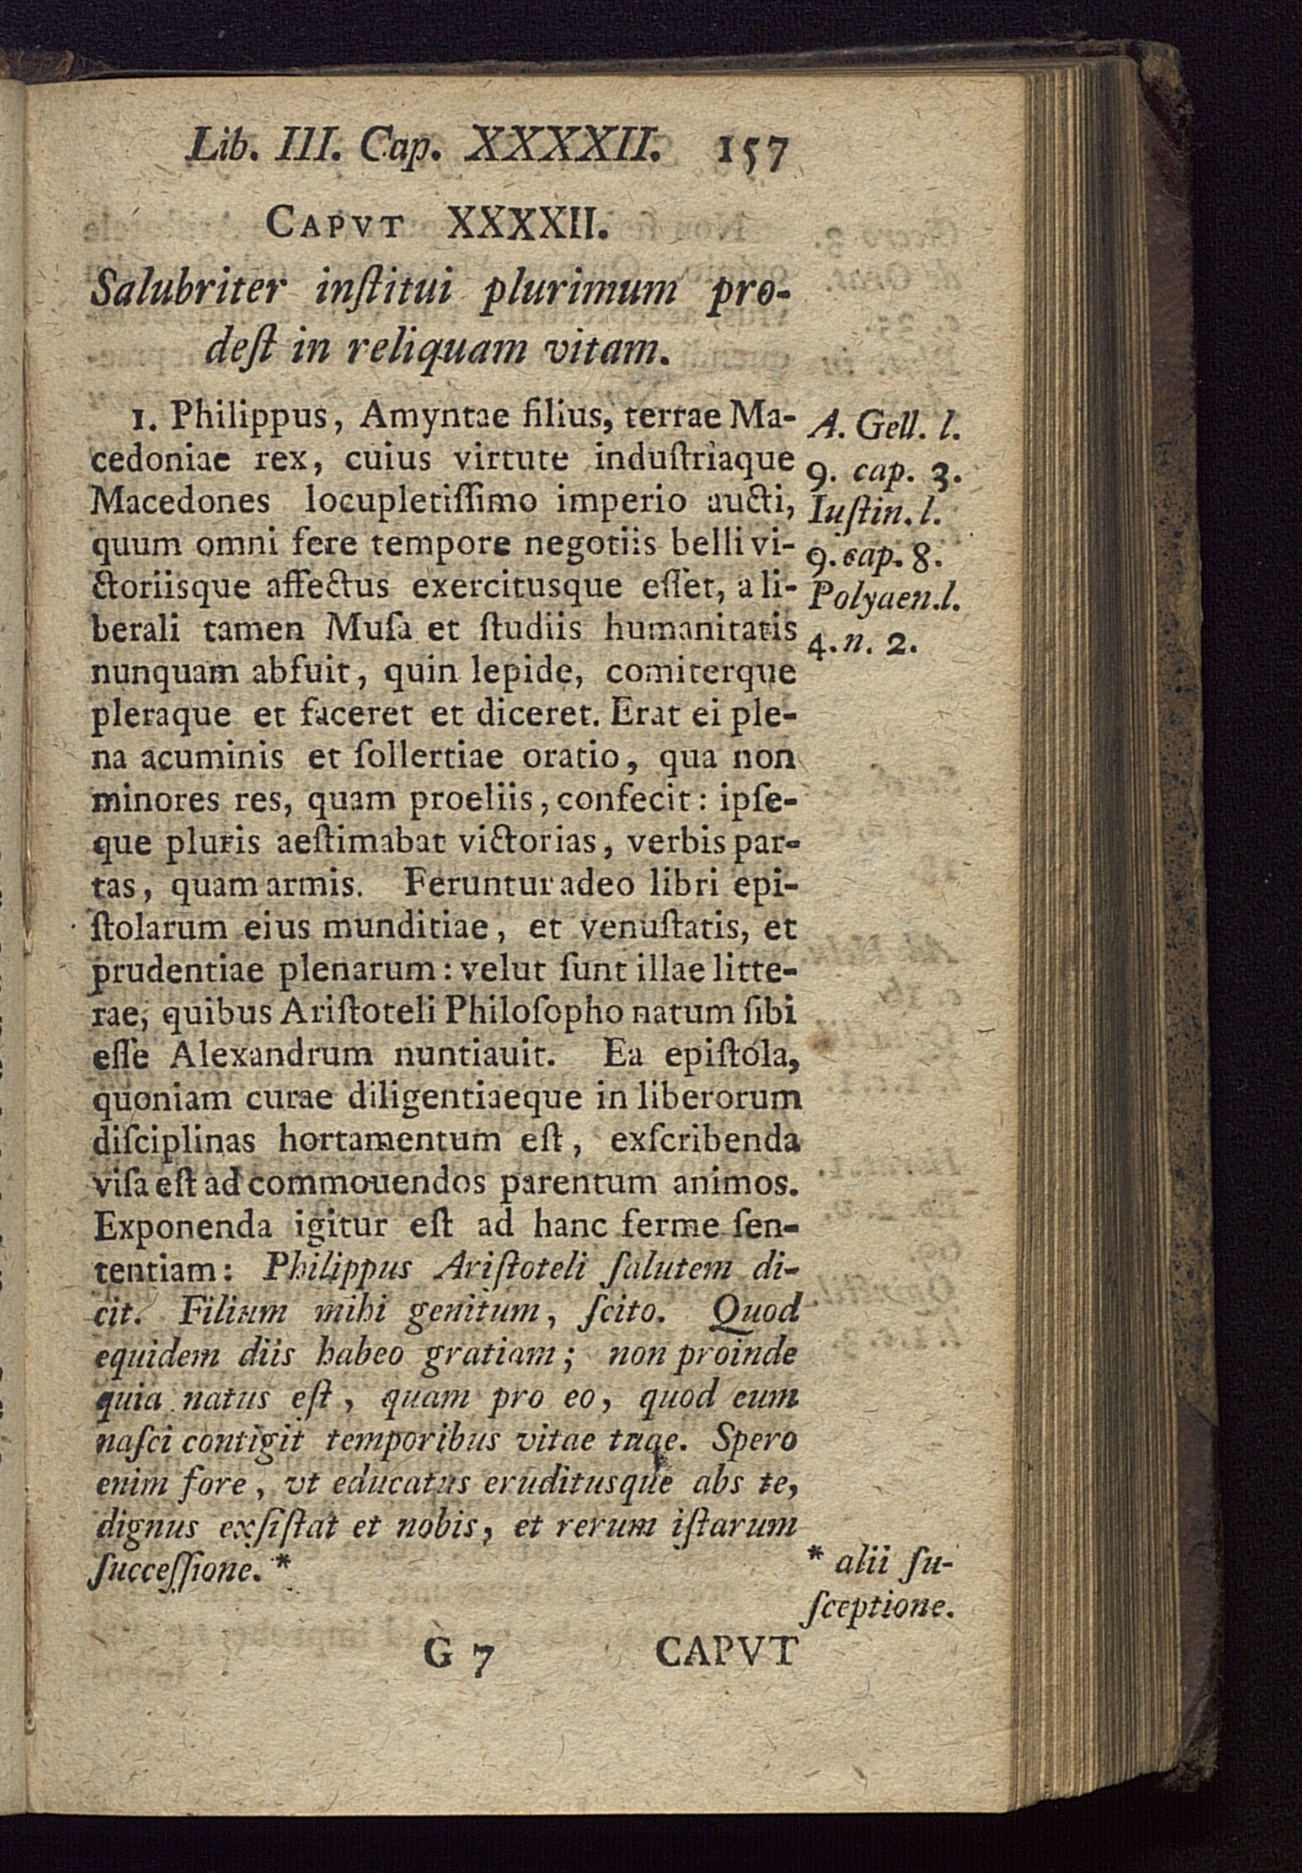 Lib. III. Cap. XXXXII. 157
CAPVT XXXXII.
Salubriter inſtitui plurimum pro-
deſt in reliquam vitam.
1. Philippus, Amyntae filius, terrae Ma-
cedoniae rex, cuius virtute induſtriaque
Macedones locupletiſſimo imperio aucti,
quum omni fere tempore negotiis belli vi-
ctoriisque affectus exercitusque eſſet, a li-
berali tamen Muſa et ſtudiis humanitatis
nunquam abfuit, quin lepide, comiterque
pleraque et faceret et diceret. Erat ei ple-
na acuminis et ſollertiae oratio, qua non
minores res, quam proeliis, confecit: ipſe-
que pluris aeſtimabat victorias, verbis par-
tas, quam armis. Feruntur adeo libri epi-
ſtolarum eius munditiae, et venuſtatis, et
prudentiae plenarum: velut ſunt illae litte-
rae, quibus Ariſtoteli Philoſopho natum ſibi
eſſe Alexandrum nuntiauit. Ea epiſtola,
quoniam curae diligentiaeque in liberorum
diſciplinas hortamentum eſt, exſcribenda
viſa eſt ad commouendos parentum animos.
Exponenda igitur eſt ad hanc ferme ſen-
tentiam: Philippus Ariſtoteli ſalutem di-
cit. Filium mihi genitum, ſcito. Quod
equidem diis habeo gratiam; non proinde
quia natus eſt, quam pro eo, quod eum
naſci contigit temporibus vitae tuae. Spero
enim fore, vt educatus eruditusque abs te,
dignus exſiſtat et nobis, et rerum iſtarum
ſucceſſione. *
A. Gell. l.
9. cap. 3.
Iuſtin. l.
9. cap. 8.
Polyaen. l.
4. n. 2.
* alii ſu-
ſceptione.
G 7 CAPVT